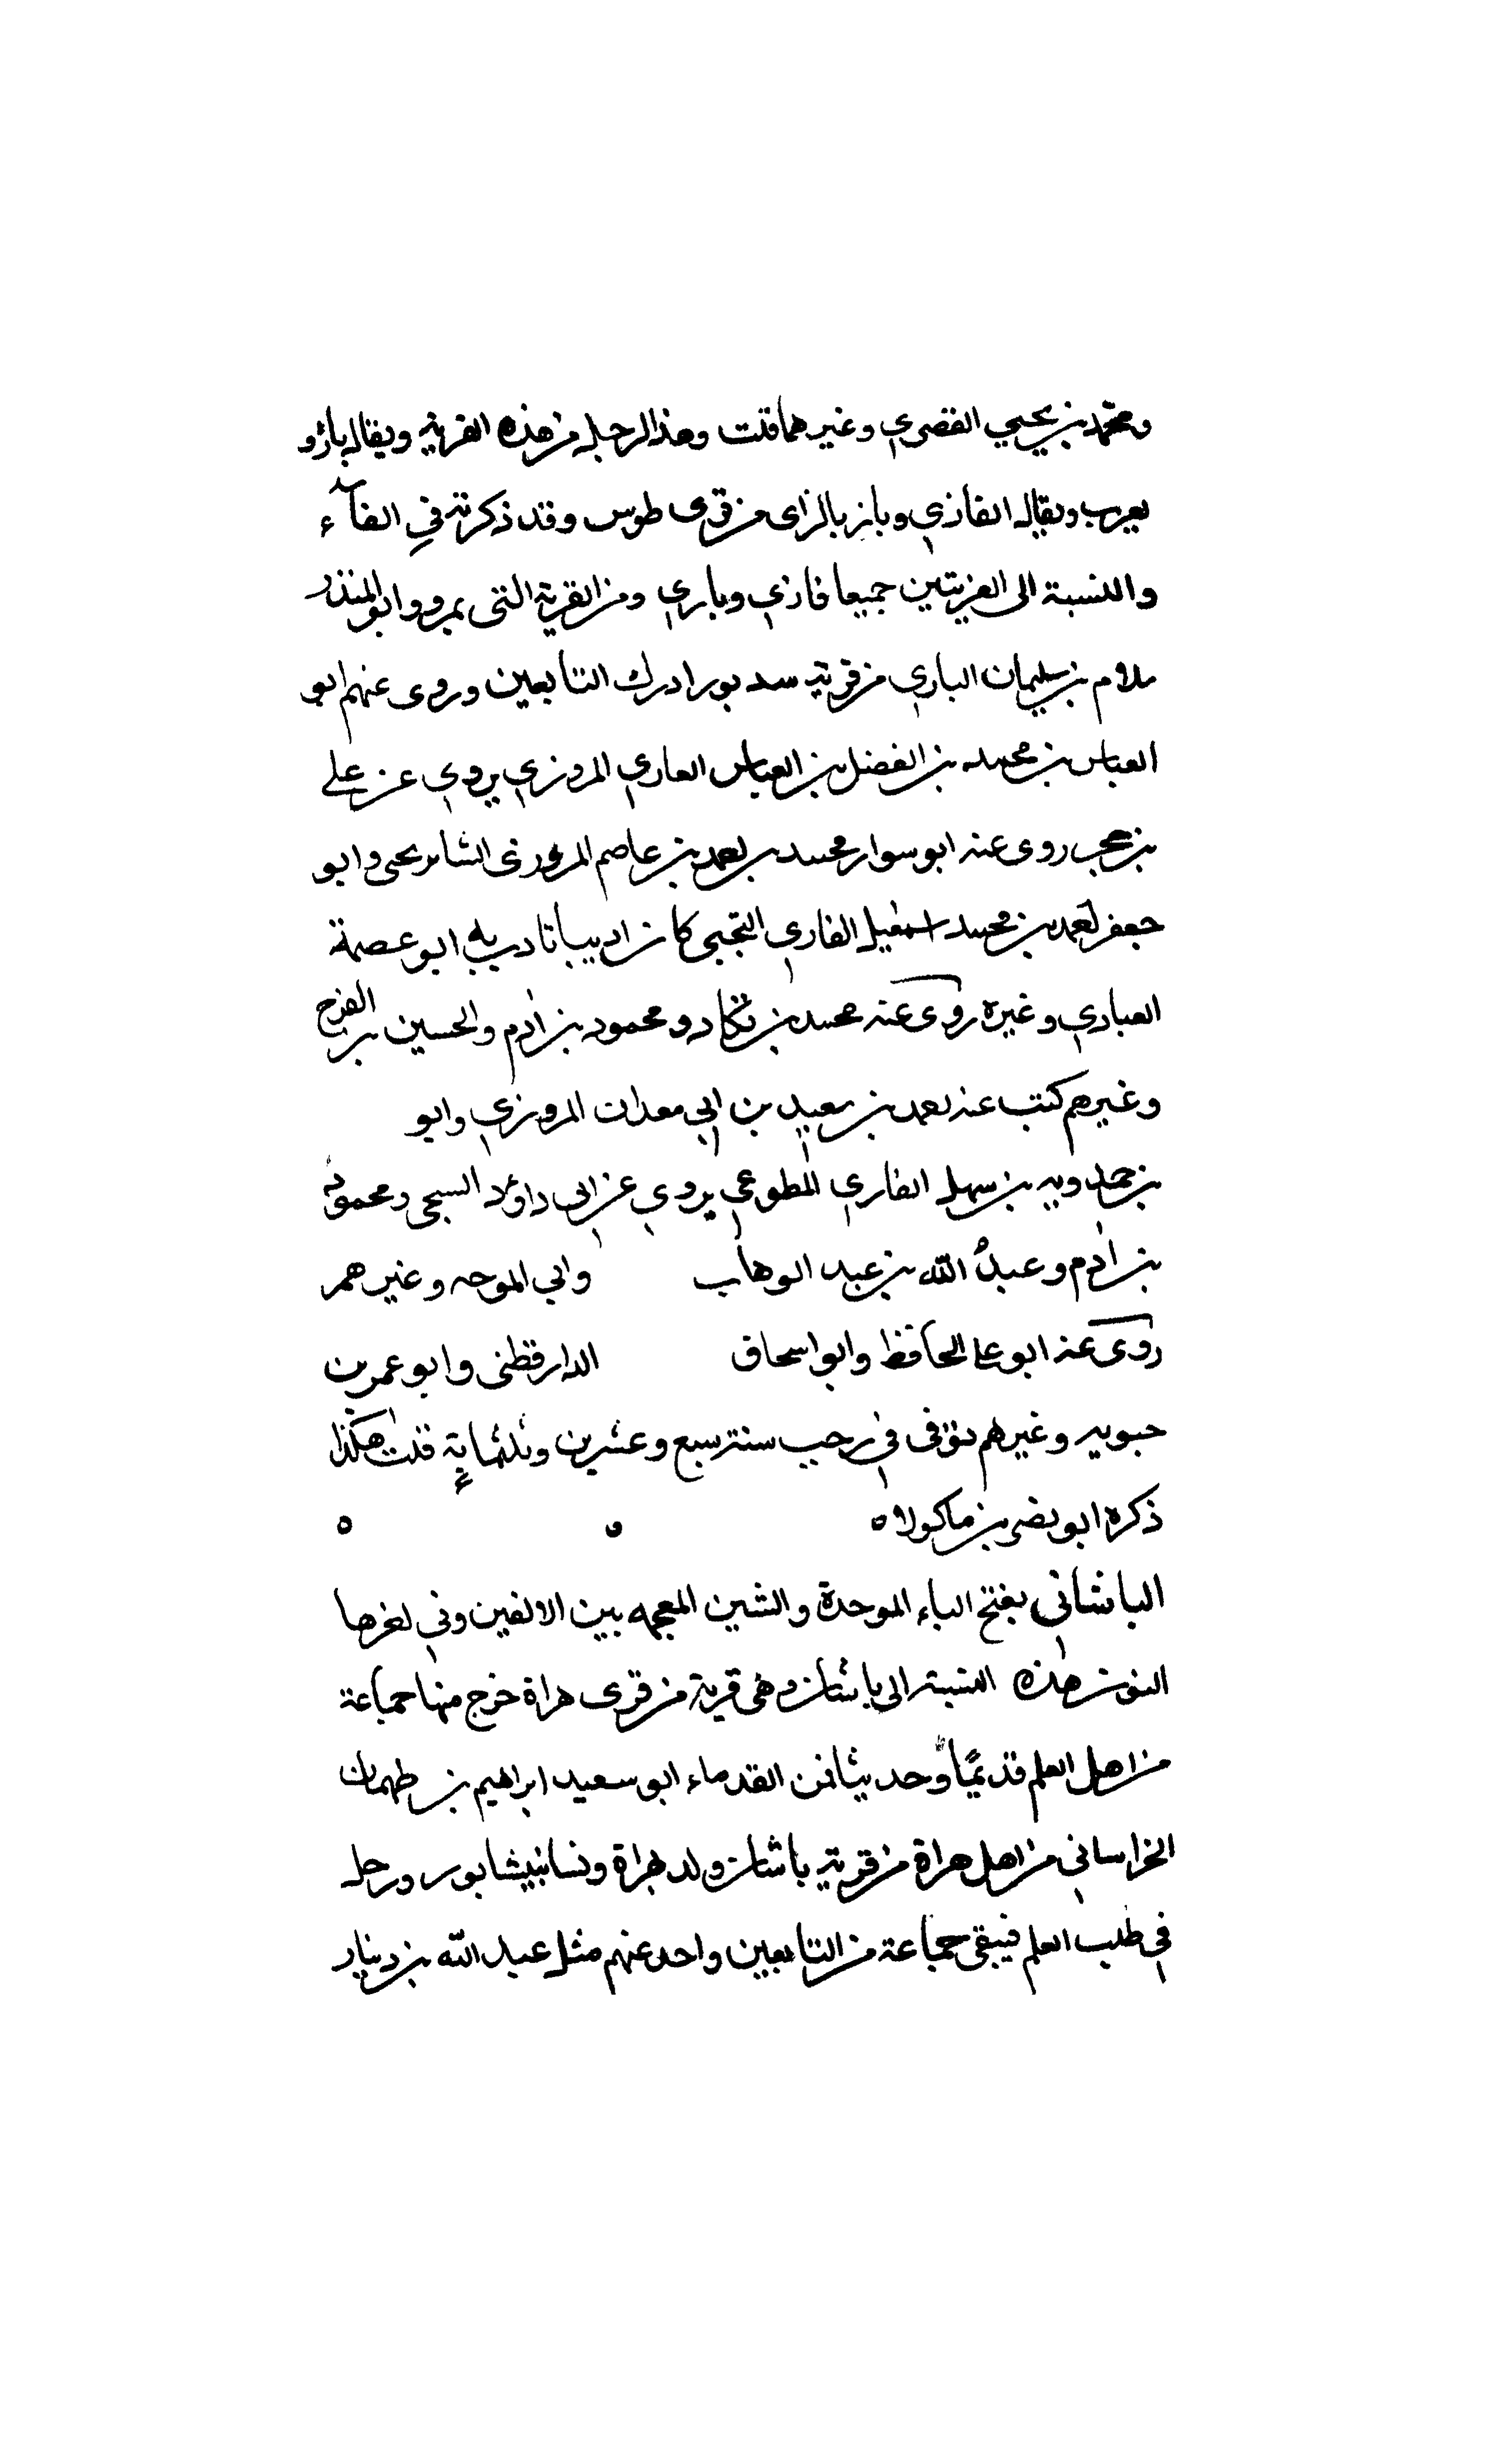 ومحمد بن يحيى القصري وغيرهما قلت وهذا الرجل من هذه القرية ويقال باز و
يعرب ويقال الفازي وباز بالزاى من قرى طوس وقد ذكرته في الفاء
والنسبة الى القريتين جميعا فازي وبازي ومن القرية التى بمرو وابو المنذر
سلام بن سليمان البازي من قرية ادرك التابعين وروى عنهم ابو
العباس بن محمد بن الفضل بن العباس المروزي يروي عن على
بن حجر روى عنه ابو سوار محمد بن احمد بن عاصم المروزى وابو
جعفر احمد بن محمد اسمعيل الفازي كان اديبا تادب به ابو عصمة
العبادي وغيره روى عنه محمد بن ومحمود بن ادم والحسين بن الفرج
وغيرهم كتب عنه احمد بن سعيد بن ابي معدان المروزي وابو
بن حمدويه بن سهل الفازي المطوعي يروي عن ابى داؤد السنجى ومحمود
بن ادم وعبد الله بن عبد الوهاب وابي الموجه وغيرهم
روى عنه ابو على الحافظ وابو اسحاق الدارقطنى وابو عمر بن
حيويه وغيرهم توفى في رجب سنة سبع وعشرين وثلثماية قلت هكذا
ذكره ابو نصر بن ماكولا ه ه ه
الباشانى بفتح الباء الموحدة والشين المعجمه بين الالفين وفي اخرها
النون هذه النسبة الى باشان وهى قرية من قرى هراة خرج منها جماعة
من اهل العلم قديمًا وحديثا فمن القدماء ابو سعيد ابراهيم بن طهمان
الخراساني من اهل هراة من قرية باشان ولد بهراة ونشا بنيشابور ورحل
في طلب العلم فبقى جماعة من التابعين واخذ عنهم مثل عبد الله بن دينار